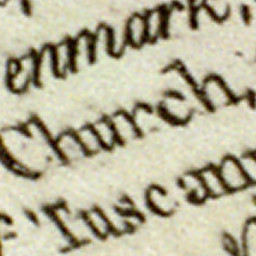 enmark,
Church,
Tuscany